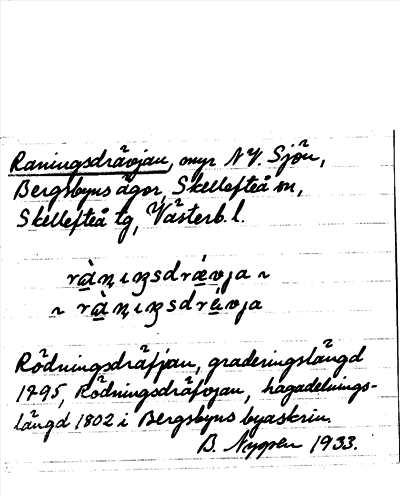 Raningsdrävjan, myr NV. Sjön,
Bergsbyns ägor, Skellefteå sn,
Skellefteå tg, Västerb. l.
rà̱ṇıŋsdrǽ̱vja ~
~ rà̱ṇıŋsdrá̱vja
Rödningsdräfjan, graderingslängd
1795, Rödningsdräfvjan, hagadelnings-
längd 1802 i Bergsbyns byaskrin.
B. 1933.